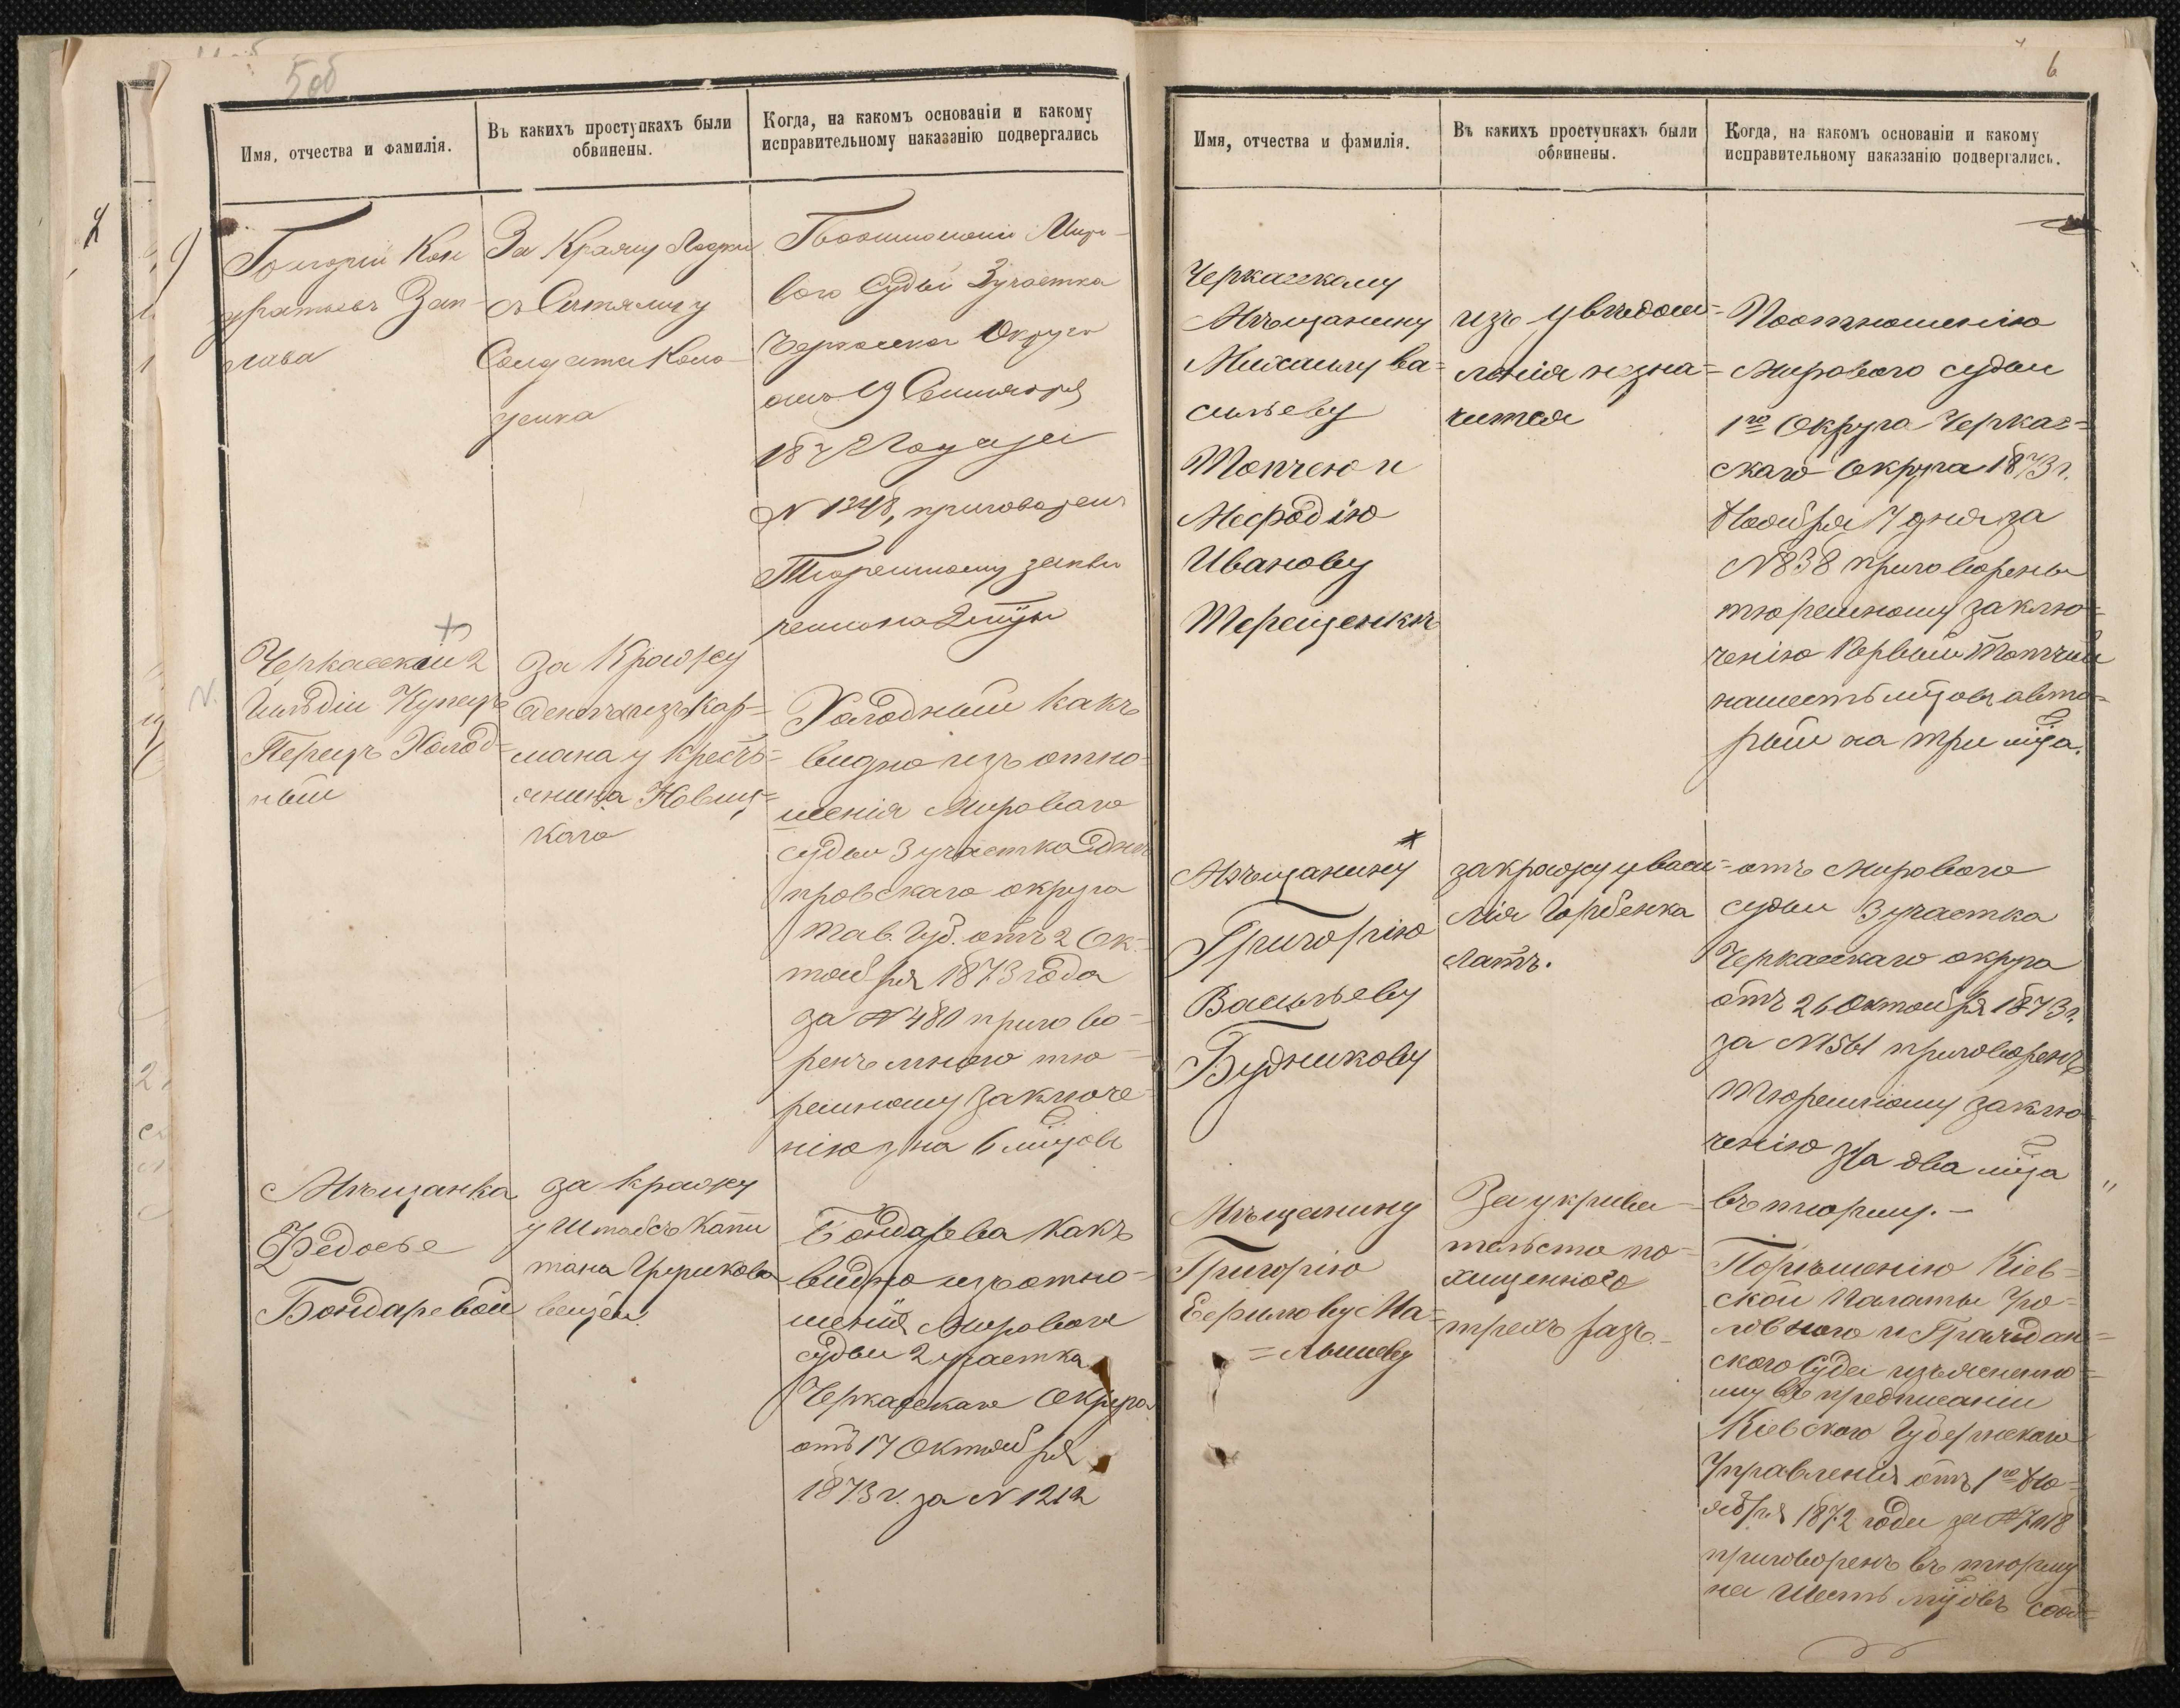 5об
Имя, отчества и фамилія.
Въ какихъ проступкахъ были
обвинены.
Когда, на какомъ основаніи и какому
исправительному наказанію подвергались
Кон
дратьевъ Зап
лава
За Кражу Лодки
Солдата Коло
Миро-
ваго Судьи 3 участка
Округа
отъ 19 Сентября
187 года за
N 1248, приговоренъ
Тюремному заклю
Черкасскій 2
Гильдіи Купецъ
Перецъ Холод=
ный
За Кражу
денегъ изъ кар=
мана у крестъ=
янина Новиц=
каго
Холодный какъ
видно изъ отно=
шенія Мироваго
судьи 3 участка Днѣ
провскаго округа
Тав. Губ. отъ 2 Ок=
тября 1873 года
за N 480 пригово=
ренъ мною тю=
ремному заключе=
нію на 6 мѣцовъ
Мѣщанка
Федосье
Бондаревой
за кражу
у Штабсъ Капи
тана
вещей.
Бондарева какъ
видно изъ отно=
шенія Мироваго
судьи 2 участка
Черкасскаго Округа
отъ 17 Октября
1873 г. за N 1212
6
Имя, отчества и фамилія.
Въ какихъ проступкахъ были
обвинены.
Когда, на какомъ основаніи и какому
исправительному наказанію подвергались.
Черкасскому
Мѣщанину
Михаилу Ва=
сильеву
Топчею и
Мефодію
Иванову
Терещенкѣ
изъ увѣдом=
ленія не зна=
чится
По отношенію
Мироваго судьи
1го Округа Черкас=
скаго Округа 1873 г.
Ноября 7 дня за
N 838 приговорены
тюремному заклю=
ченію Первый Топчій
на шесть мѣцовъ а вто=
рый на три мѣца.
Мѣщанину
Григорію
Васильеву
Будникову
за кражу у Васи=
лія Горбенка
латъ.
отъ Мироваго
судьи 3 участка
Черкасскаго округа
отъ 26 Октября 1873 г.
за N 1561 приговоренъ
Тюремному заклю
ченію На два мѣца
въ тюрму.-
Мѣщанину
Григорію
Ефимову Ма=
=лышеву
За укрыва
тельство по=
хищенного
трехъ разъ
По рѣшенію Кіев=
ской Палаты Уго=
ловного и Граждан=
ского Суда изъясненно=
му въ предписаніи
Кіевского Губернскаго
Управленія отъ 1го Но=
ября 1872 года за N 7118
приговоренъ въ тюрму
на Шесть мѣцовъ сооб=